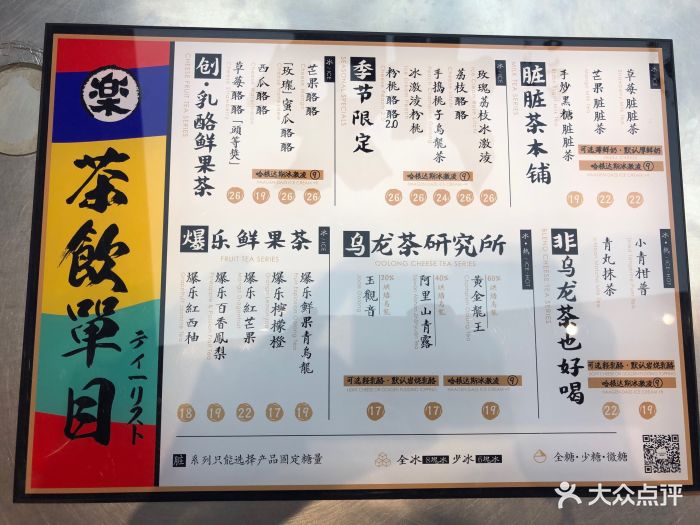 楽
茶飲單目
ティーリスト
創·乳酪鮮果茶
CHEESE FRUIT TEA SERIES
冰·ICE
芒果酪酪
「玫瓏」蜜瓜酪酪
西瓜酪酪
草莓酪酪「頭等獎」
哈根达斯冰激凌 9
26
19
26
26
季节限定
SEASONAL SPECIALS
冰·ICE
玫瑰荔枝冰激凌
荔枝酪酪
手搗桃子烏龍茶
冰激凌粉桃
粉桃酪酪2.0
哈根达斯冰激凌 9
26
26
24
26
26
脏脏茶本铺
MILK TEA SERIES
冰·ICE
草莓脏脏茶
芒果脏脏茶
手炒黑糖脏脏茶
可选薄鲜奶·默认厚鲜奶
哈根达斯冰激凌 9
19
22
22
爆乐鲜果茶
FRUIT TEA SERIES
冰·ICE
爆乐鲜果青烏龍
爆乐檸檬橙
爆乐紅芒果
爆乐百香鳳梨
爆乐紅西柚
18
19
22
17
19
乌龙茶研究所
OOLONG CHEESE TEA SERIES
冰·热 ICE HOT
60%烘焙烏龍
黃金龍王
40%烘焙烏龍
阿里山青露
20%烘焙烏龍
玉觀音
可选轻乳酪·默认岩烧乳酪
哈根达斯冰激凌 9
17
17
17
非乌龙茶也好喝
BLEND CHEESE TEA SERIES
冰·热 ICE HOT
小青柑普
青丸抹茶
可选轻乳酪·默认岩烧乳酪
哈根达斯冰激凌 9
22
19
脏 系列只能选择产品固定糖量
全冰 8塊冰 少冰 6塊冰
全糖·少糖·微糖
大众点评